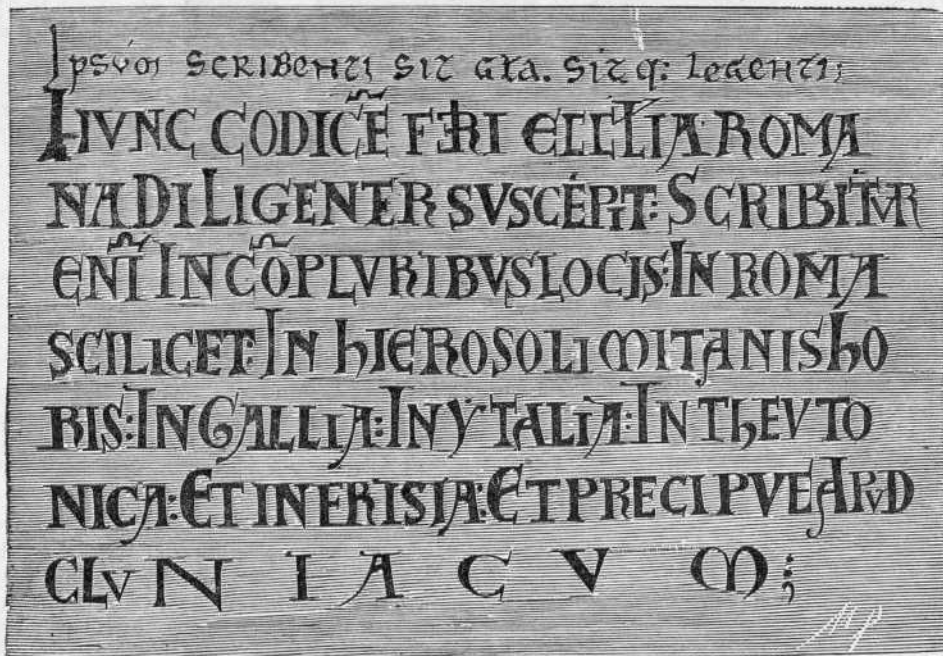 IpsVm SCRIBENTI SIT GLA. SIT q: LEGENTI;
HVNC CODICE͂ PRI ECCLIA ROMA
NA DILIGENTER SVSCEPIT: SCRIBITVR
ENI͂ IN CO͂PLVRIBVS LOCIS: IN ROMA
SCILICET: IN hIEROSOLIMITANIS hO
RIS: IN GALLIA: IN YTALIA: IN ThEVTO
NICA: ET IN FRISIA: ET PRECIPVE APVD
CLVNIACVM;